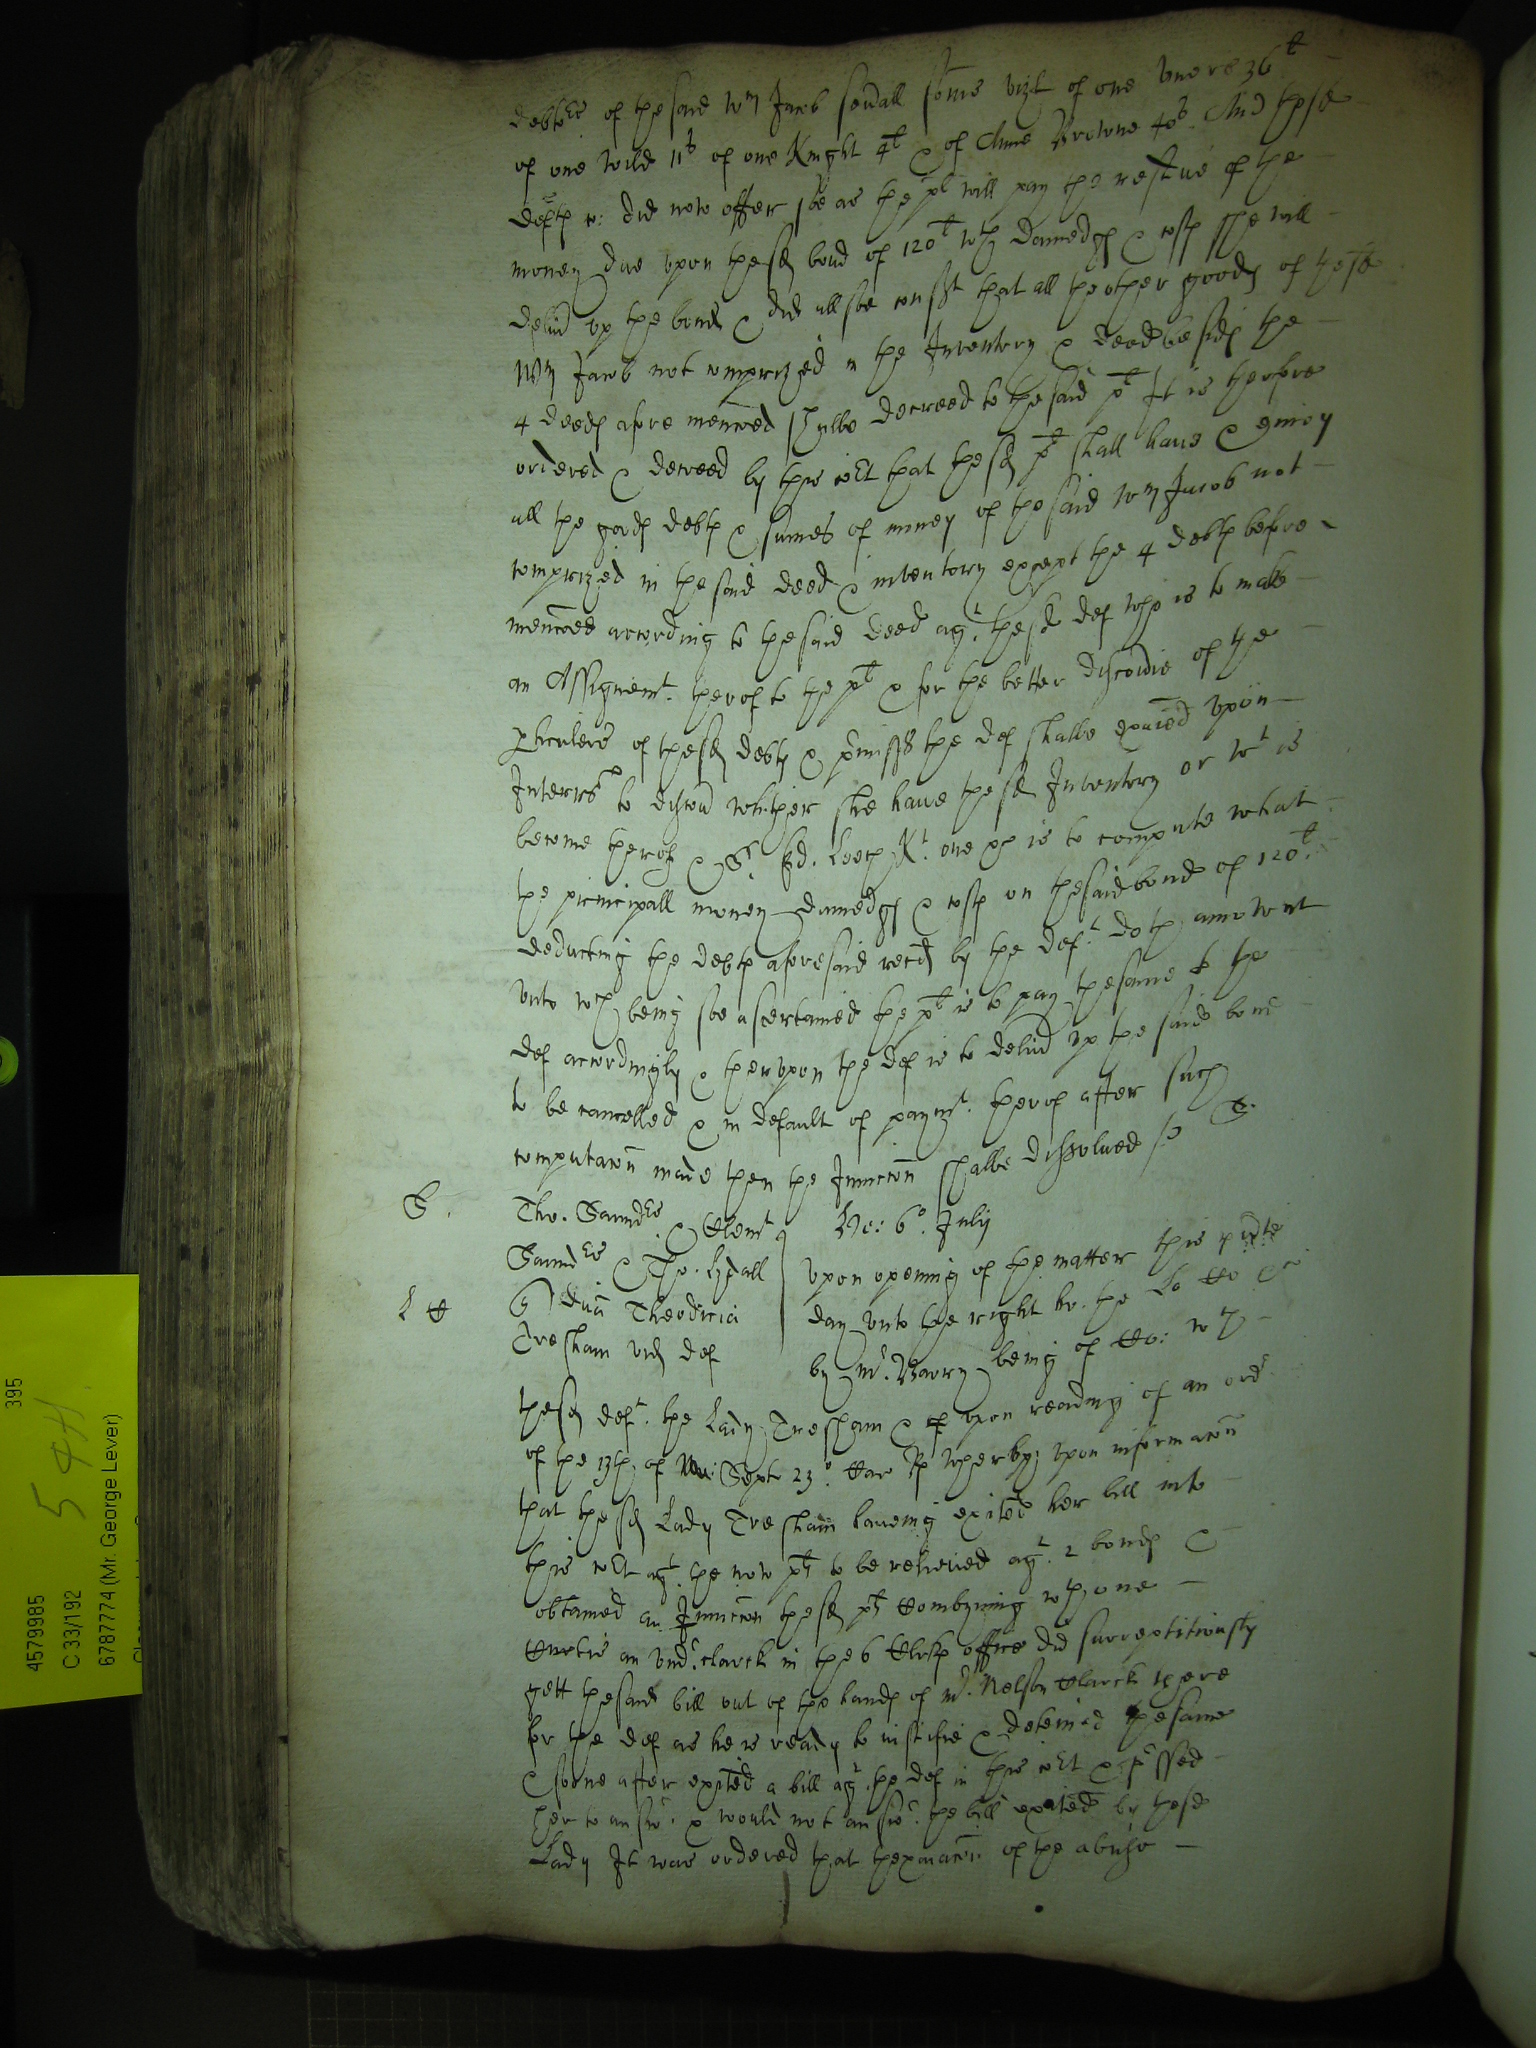 debtors of the said Wm Jacob seuall somes vizt of one Vnere 36l
of one Wild 11s of one Knight 4l & of Anne Browne 40s. And these
deftp c: did now offer soe as the pl will pay the residue of the
money due vpon thesd bond of 120l wth damedgs & costs shee will
deliu vp the bond & did allsoe consent that all the other goods of the sd
Wm Jacob not comprized in the Inventory & deed besids the
4 deeds afore menconed shalbe decreed to the said pt It is therfore
ordered & decreed by this cort that thesd pt shall haue & enioy
all the goods debts & sumes of money of the said Wm Jacob not
comprized in the said deed & inventory except the 4 debts before
menconed according to the said deed agt. thesd def who is to make
an Assignemt. therof to the pt & for the better discouie of the
pticulers of thesd debts & pmisses the def shalbe exaied vpon
Interrs to discou whether she haue thesd Inventory or wt is
become therof & Sr. Ed. Leech Kt. one &c is to compute what
the principall money damedgs & costs on the said bond of 120l.
deducting the debts aforesaid recd by the deft. doth amount
vnto wch being soe ascertained the pt is to pay the same to the
def accordingly & thervpon the def is to deliu vp the said bond
to be cancelled & in default of paymt. therof after such
computacon made then the Iniunccon shalbe dissolued
S.
Tho. Saunders & Clemt
Saunders & Tho. Lydall
q
L C
Dna Theodicia
Tresham vid def
Ve: 6o. July
Vpon opening of the matter this pnte
day vnto the right ho. the Lo
by mr. Barry being of Co: wth
thesd deft. the Lady Tresham & vpon reading of an ordr
of the 13th of Septr 23o. Car Rs wherby vpon informacon
that thesd Lady Tresham haueing exited her bill into
this cort agt. the now pts to be releiued agt. 2 bonds &
obtained an Iniunccon thesd pts Combyning wth one
Curtis an vndr.clarck in the 6 Clrks office did surreptitiously
gett the said bill out of the hands of mr. Nelson Clarck there
for the def as he is ready to iustifie & deteined the same
& soone after exited a bill agt. the def in this cort & pssed
her to answr. & would not answr. the bill exited by thesd
Lady It was ordered that thexaiacon of the abuse
395
5 4H
4579985
C 33/192
6787774 (Mr. George Lever)